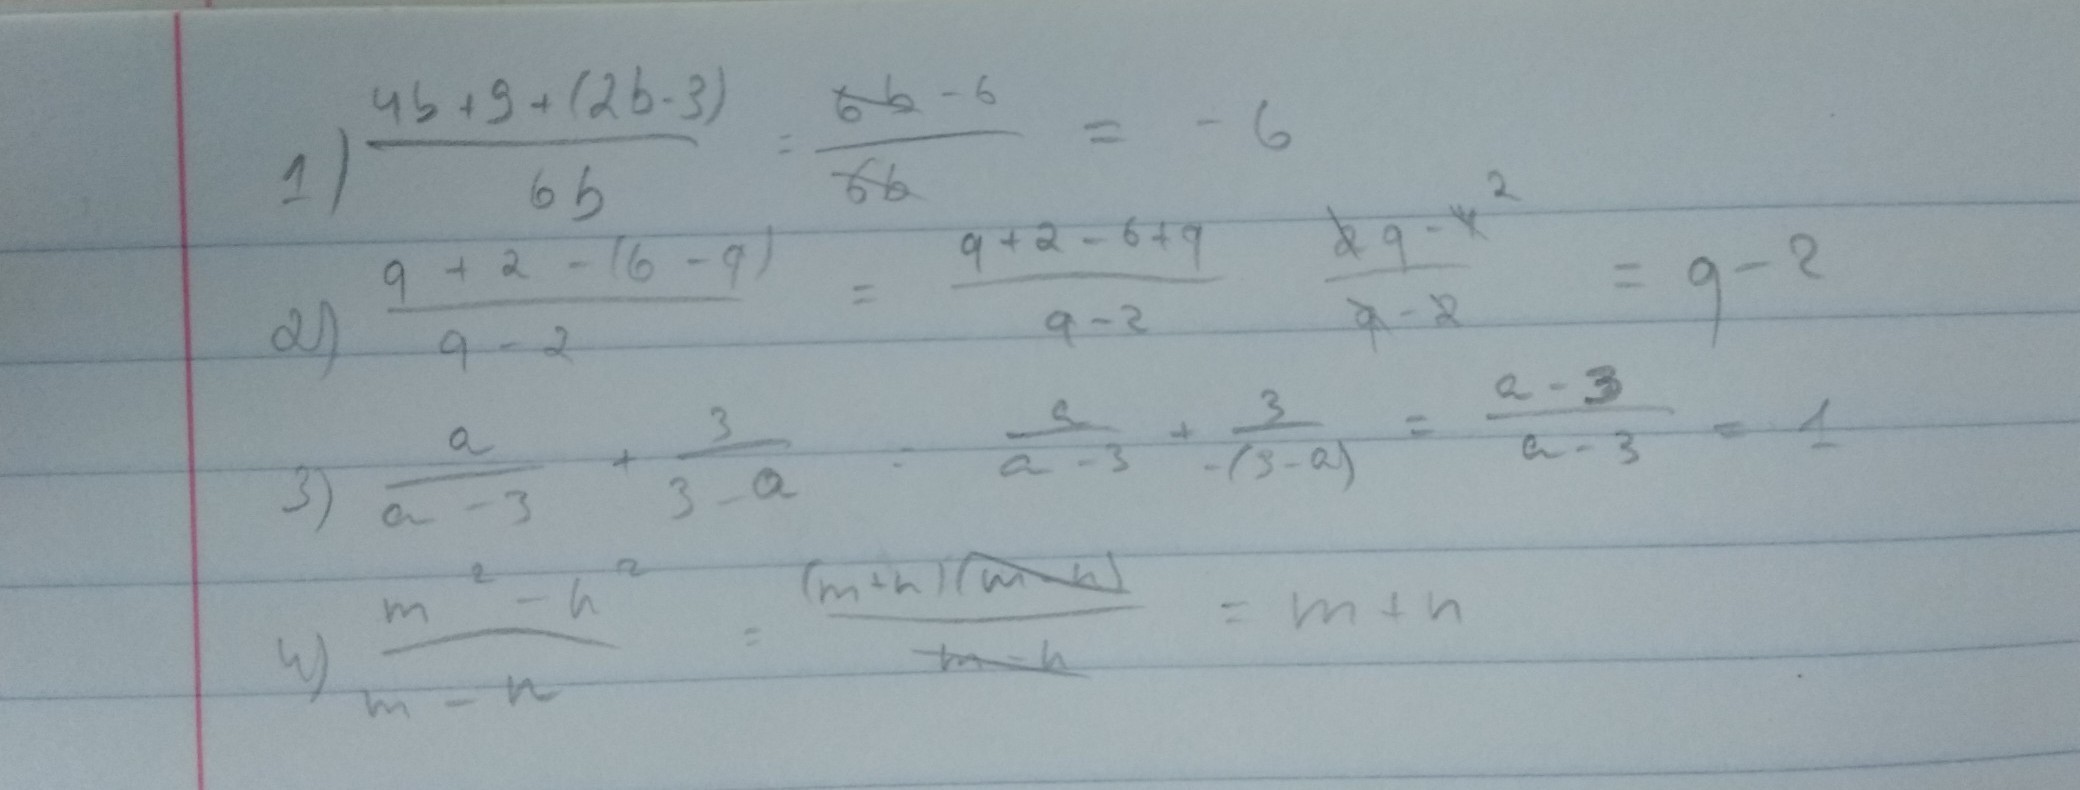 1) (4b+9+(2b-3))/(6b) = (6b-6)/(6b) = -6
2) (q+2-(6-q))/(q-2) = (q+2-6+q)/(q-2) (2q-4 2)/(q-2) = q-2
3) a/(a-3) + 3/(3-a) = a/(a-3) + 3/(-(3-a)) = (a-3)/(a-3) = 1
4) (m²-n²)/(m-n) = ((m+n)(m-n))/(m-n) = m+n